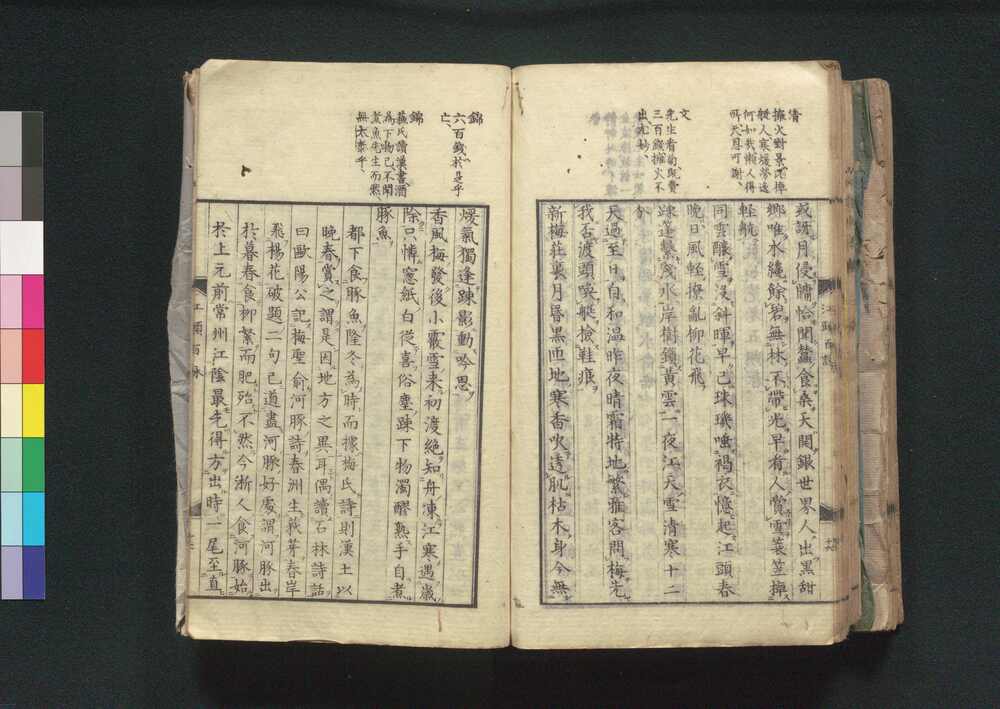 清
擁火對景、掉
艇人、寒煖勞逸
何如、我懶人得
所天恩可謝、
文
先生看菊與費
三百錢擁火不
出尤妙、
或訝月侵牖恰聞蠶食桑天関銀世界人出黒甜
鄉唯水縄餘碧無林不帶光早有人賞雪蓑笠掉
軽航
同雲釀雪没斜暉早已珠璣唾褐衣憶起江頭春
晩日風軽撩亂柳花飛
踈篷繋淺水岸樹鎖黄雲一夜江天雪清寒十二
分
天過至日自和温昨夜晴霜特地繁雅客問梅先
我否渡頭喚艇檢鞋痕
新梅荘裏月昏黒匝地寒香吹透肌枯木身今無
錦
六百錢、於是乎
亡、
錦
蘇氏讀漢書酒
為下物已不聞
煮魚先生而然
無太泰乎、
煖氣獨逢踈影動吟思
香風梅發後小霰雪来初渡絶知舟凍江寒遇歲
除只憐窓紙白從喜俗塵踈下物濁醪熟手自煮
豚魚
都下食豚魚隆冬為時而據梅氏詩則漢土以
晩春賞之謂是因地方之異耳偶讀石林詩話
曰歐陽公記梅聖俞河豚詩春洲生荻芽春岸
飛楊花破題二句已道盡河豚好處謂河豚出
於暮春食柳絮而肥殆不然今浙人食河豚始
於上元前常州江陰最先得方出時一尾至直
江頭百詠